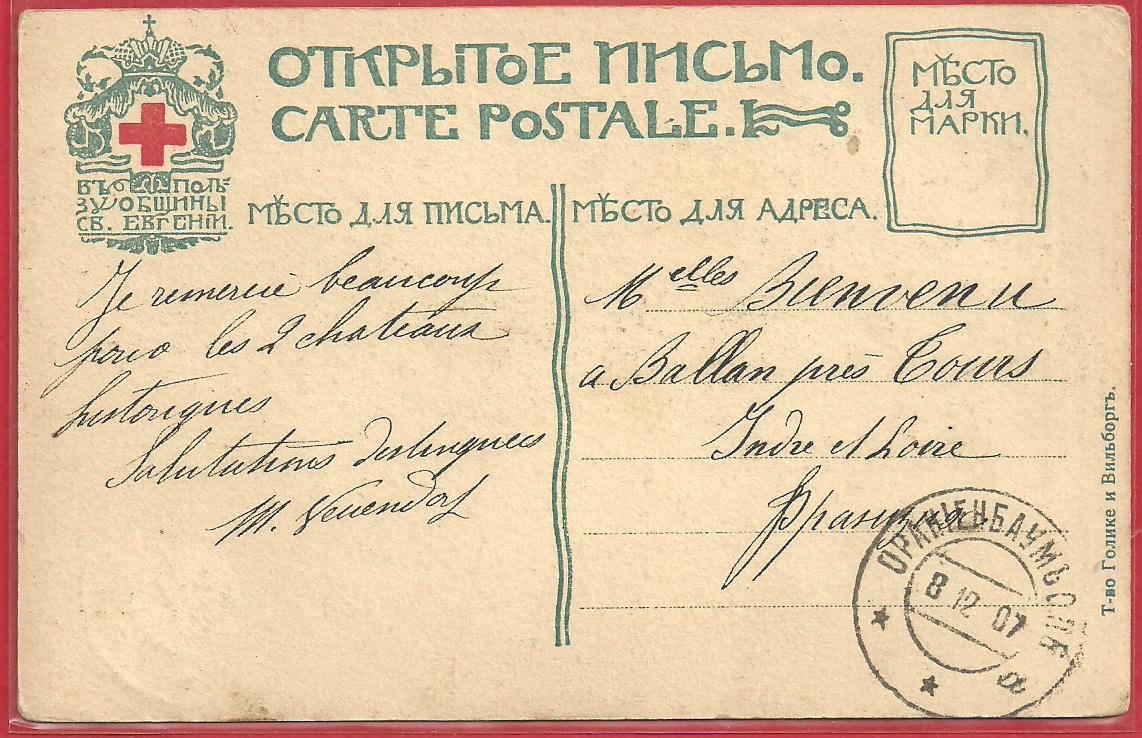 ОТКРЫТОЕ ПИСЬМО.
CARTE POSTALE.
МѢСТО
ДЛЯ
МАРКИ.
ВЪ ПОЛЬ-
ЗУ ОБЩИНЫ
СВ. ЕВГЕНІИ.
МѢСТО ДЛЯ ПИСЬМА.
МѢСТО ДЛЯ АДРЕСА.
Je remercie beaucoup
pour les 2 chateaux
historiques
Salutations distinguées
M.
Melles Bienvenu
a Ballan près Tours
Indre et Loire
Франція
ОРАНІЕНБАУМЪ
8 12 07
а
Т-во Голике и Вильборгъ.